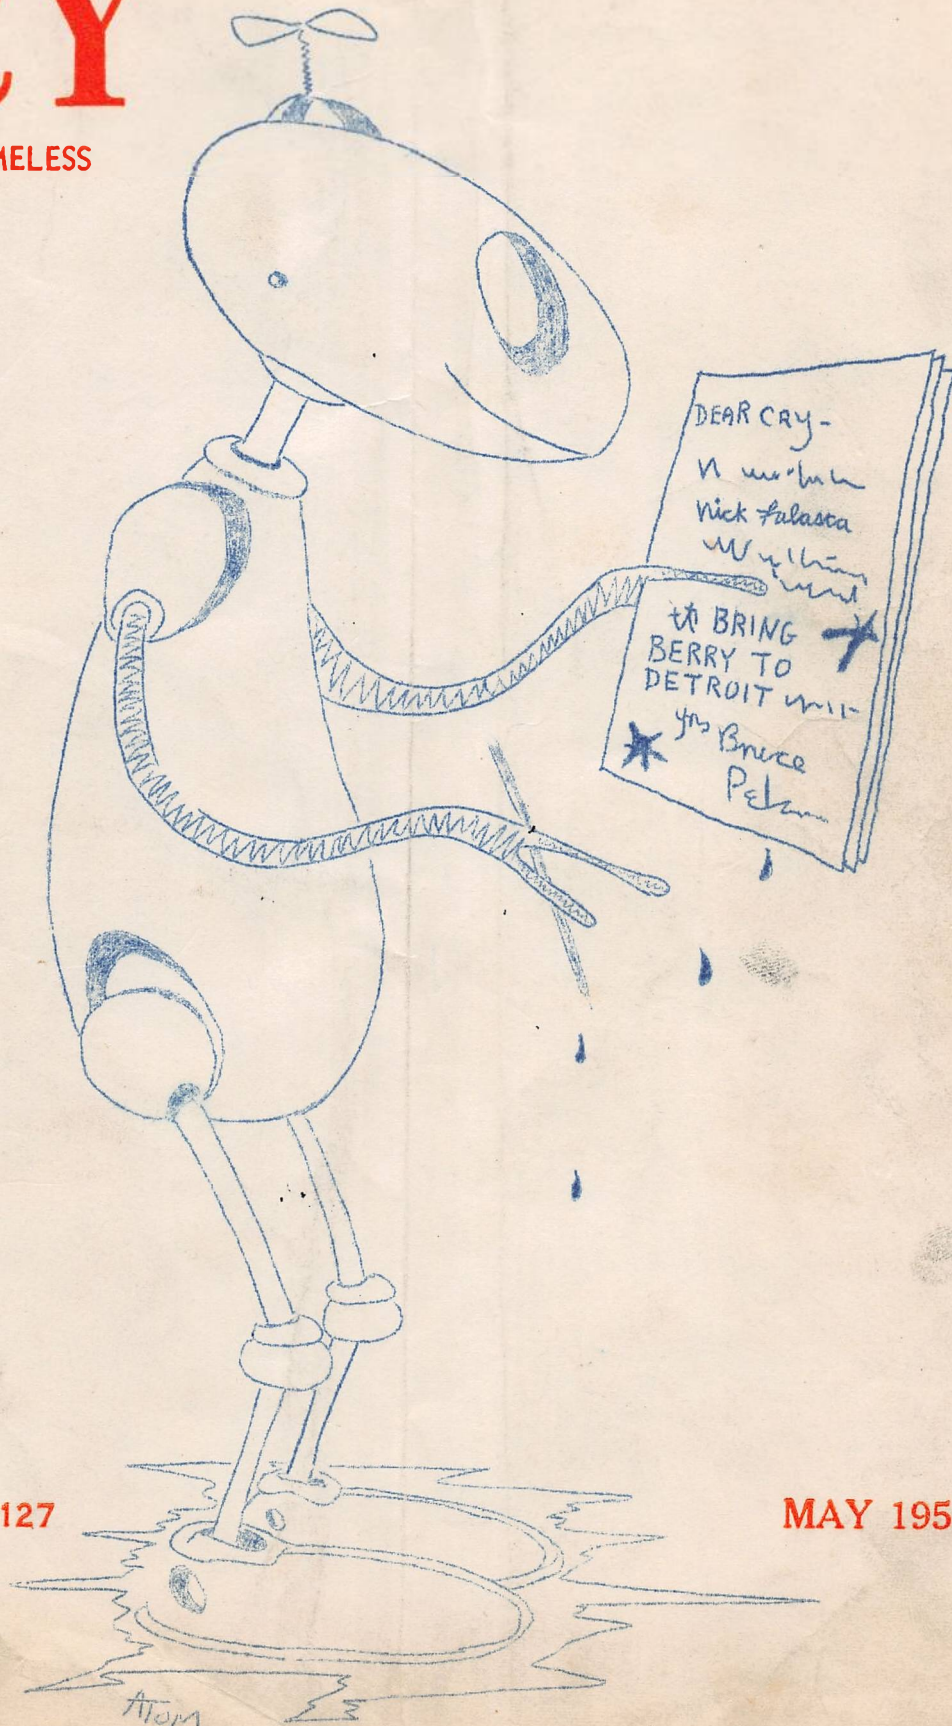 RY
MELESS
DEAR CRY-
Nick Falasca
BRING
BERRY TO
DETROIT
yrs Bruce
Pelz
127
MAY 195
ATOM